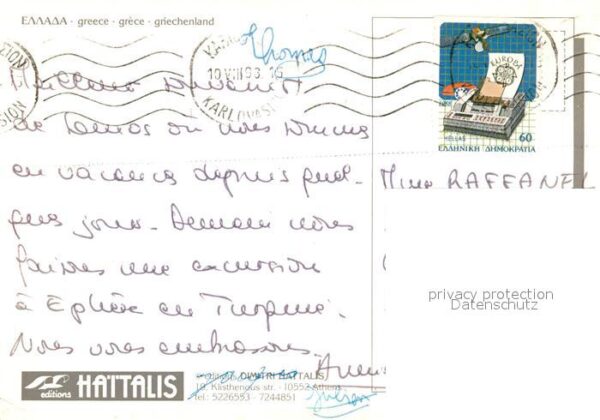 ΕΛΛΑΔΑ - greece - grèce - griechenland
Thomas
KARLOVASSI
EUROPA
HELLAS 60
ΕΛΛΗΝΙΚΗ ΔΗΜΟΚΡΑΤΙΑ
de Samos où nous sommes
en vacances depuis quel-
ques jours. Demain nous
faisons une excursion
à Ephèse en Turquie.
Nous vous embrassons.
Mme RAFFANEL
privacy protection
Datenschutz
editions HAÏTALIS
DIMITRI HAITALIS
19, Klisthenous str. - 10552 Athens
tel.: 5226553 - 7244851